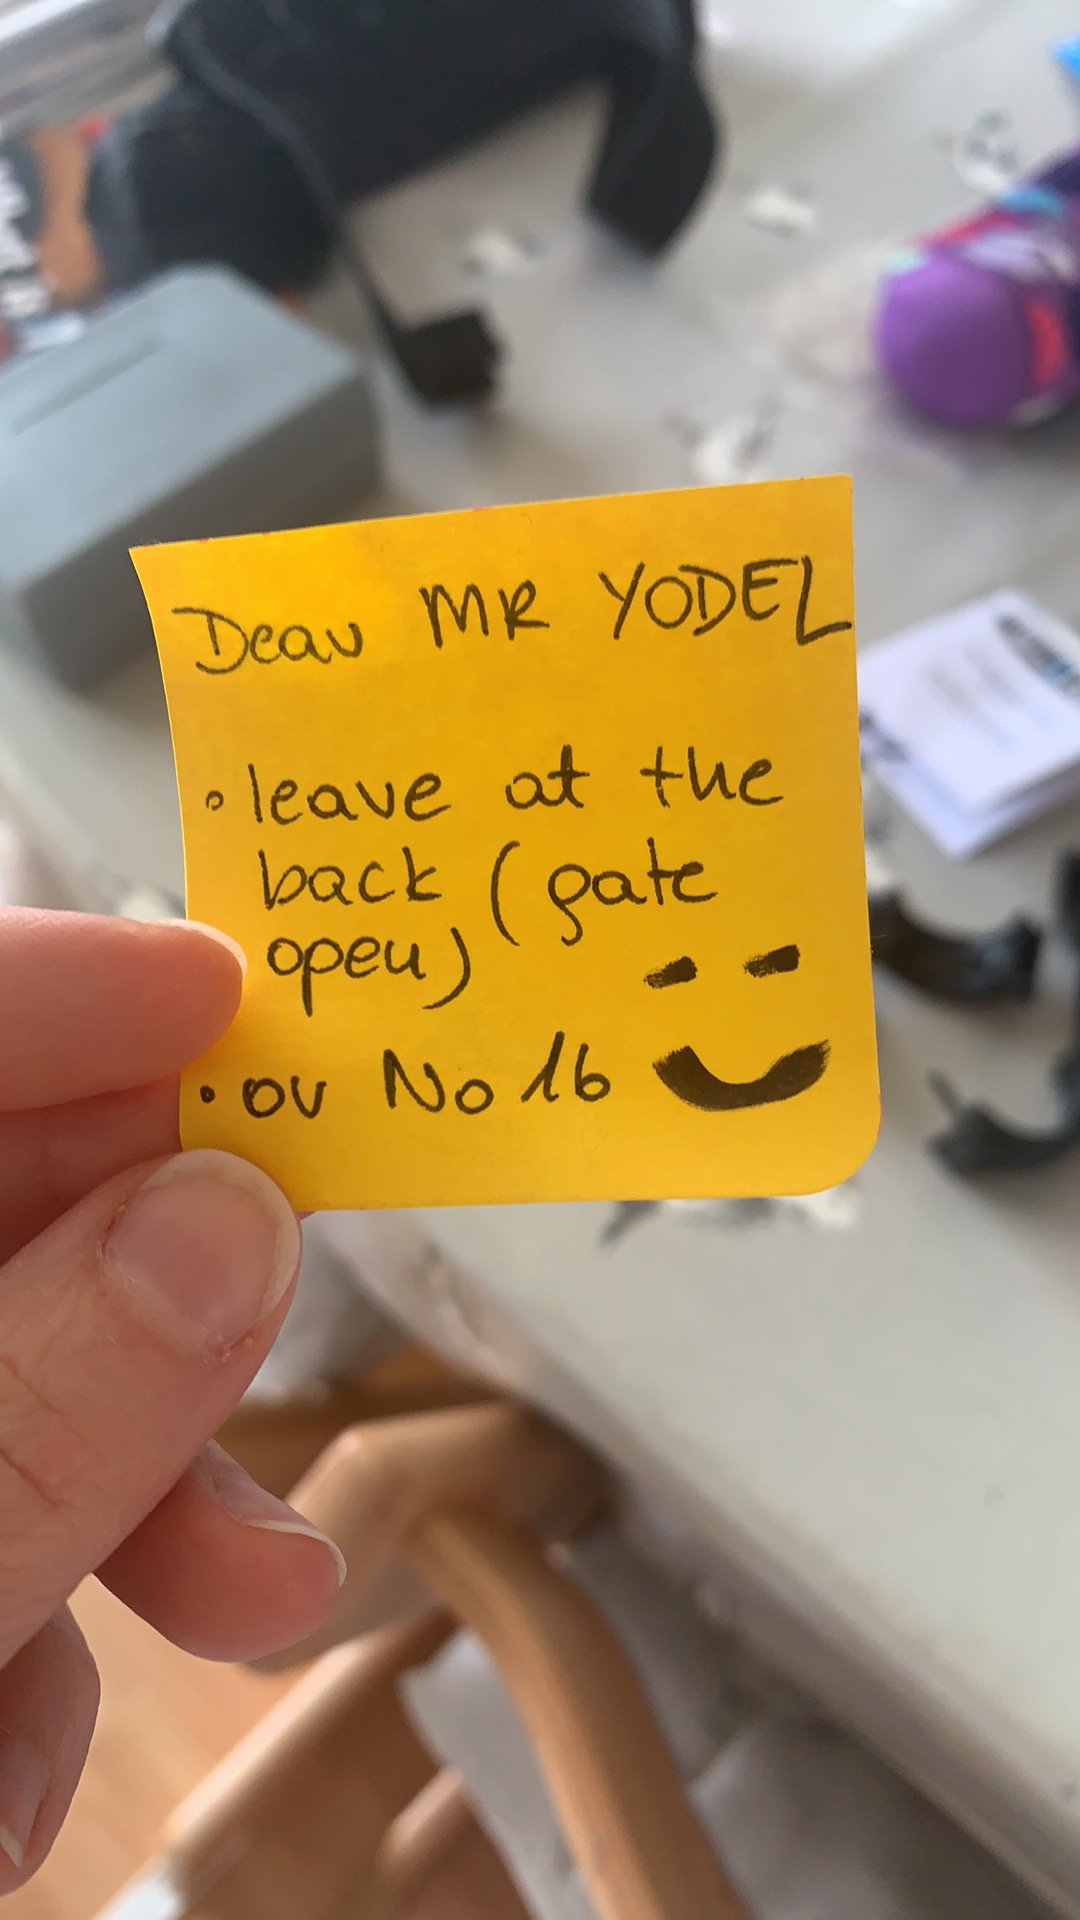 Dear MR YODEL
• leave at the
back (gate
open)
• or No 16